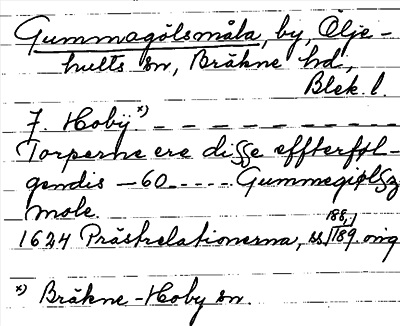 Gummagölsmåla, by,Ölje-
hults sn, Bräkne hd,
Blek. l.
J. Hobÿ x) — — — — — — — — —
Torperne ere disse effterføl-
gendis — 60 ..... Gummegiølsz
mole.
188,
1624 Prästrelationerna, ss 189. orig
x) Bräkne-Hoby sn.